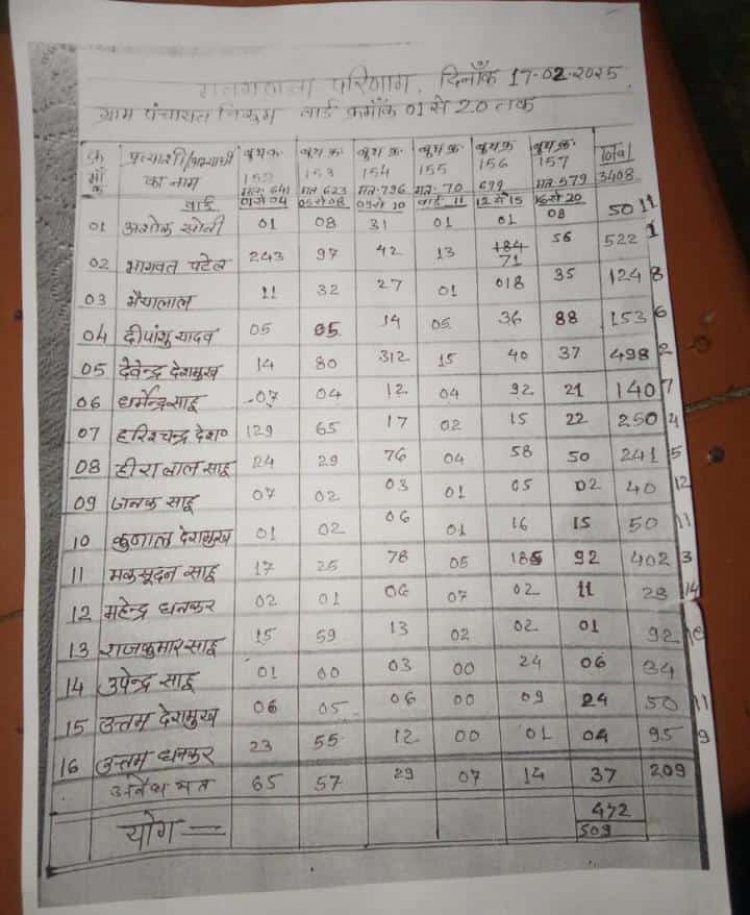 मतगणना परिणाम, दिनाँक 17-02-2025
ग्राम पंचायत चिरुम वार्ड क्रमाँक 01 से 20 तक
क्र प्रत्याशी/अभ्यार्थी का नाम बूथ क्र. 152 बूथ क्र. 153 बूथ क्र. 154 बूथ क्र. 155 बूथ क्र. 156 बूथ क्र. 157 Total
641 मत 623 मत. 796 मत. 70 699 मत. 579 3408
वार्ड 01 से 04 05 से 08 09 से 10 वार्ड 11 12 से 15 16 से 20
01 अशोक सोनी 01 08 31 01 01 08 50 11
02 भागवत पटेल 243 97 42 13 184 71 56 522 1
03 भैयालाल 11 32 27 01 018 35 124 8
04 दीपांशु यादव 05 05 14 05 36 88 153 6
05 देवेन्द्र देशमुख 14 80 312 15 40 37 498 2
06 धर्मेन्द्र साहू 07 04 12 04 92 21 140 7
07 हरिशचन्द्र देश० 129 65 17 02 15 22 250 4
08 हीरा लाल साहू 24 29 76 04 58 50 241 5
09 जनक साहू 07 02 03 01 05 02 40 12
10 कुणाल देशमुख 01 02 06 01 16 15 50 11
11 मकसूदन साहू 17 25 78 05 185 92 402 3
12 महेन्द्र धनकर 02 01 06 07 02 11 29 14
13 राजकुमार साहू 15 59 13 02 02 01 92 10
14 उपेन्द्र साहू 01 00 03 00 24 06 34
15 उत्तम देशमुख 06 05 06 00 09 24 50 11
16 उत्तम धनकर 23 55 12 00 01 04 95 9
अवैध मत 65 57 29 07 14 37 209
योग — 472
509